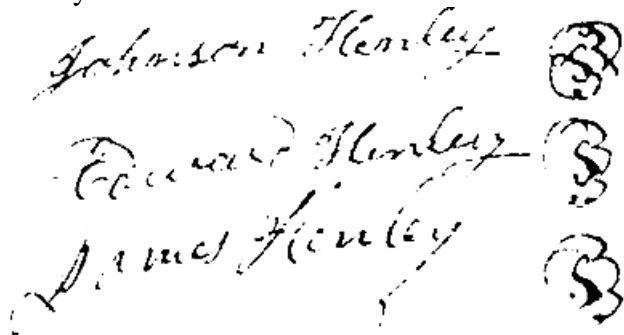 Johnson Henley
Edward Henley
James Henley